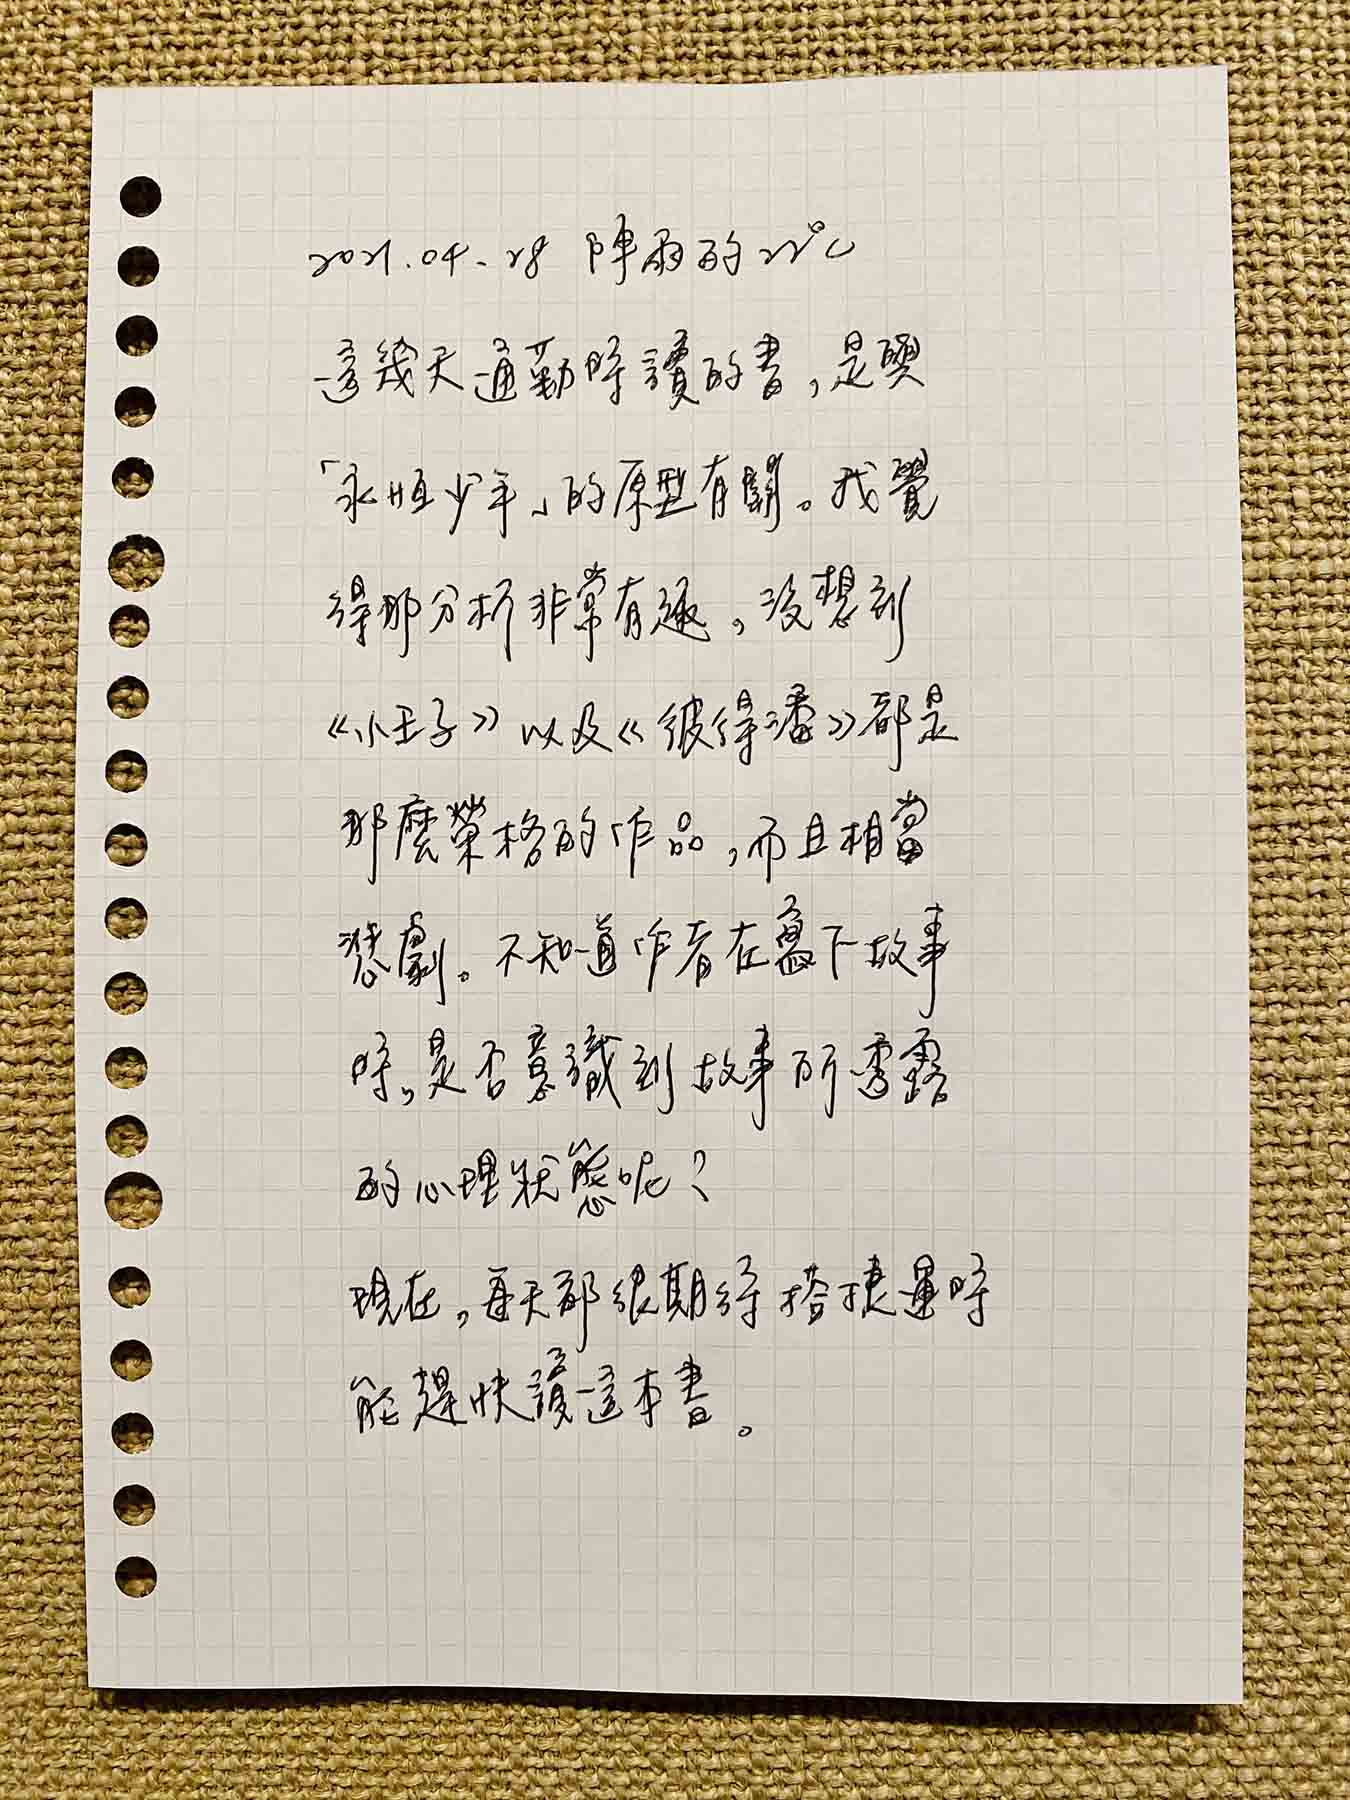 2021.04.28 陣雨的22°C
這幾天通勤時讀的書，是與
「永恆少年」的原型有關。我覺
得那分析非常有趣，沒想到
《小王子》以及《彼得潘》都是
那麼榮格的作品，而且相當
悲劇。不知道作者在寫下故事
時，是否意識到故事所透露
的心理狀態呢？
現在，每天都很期待搭捷運時
能趕快讀這本書。